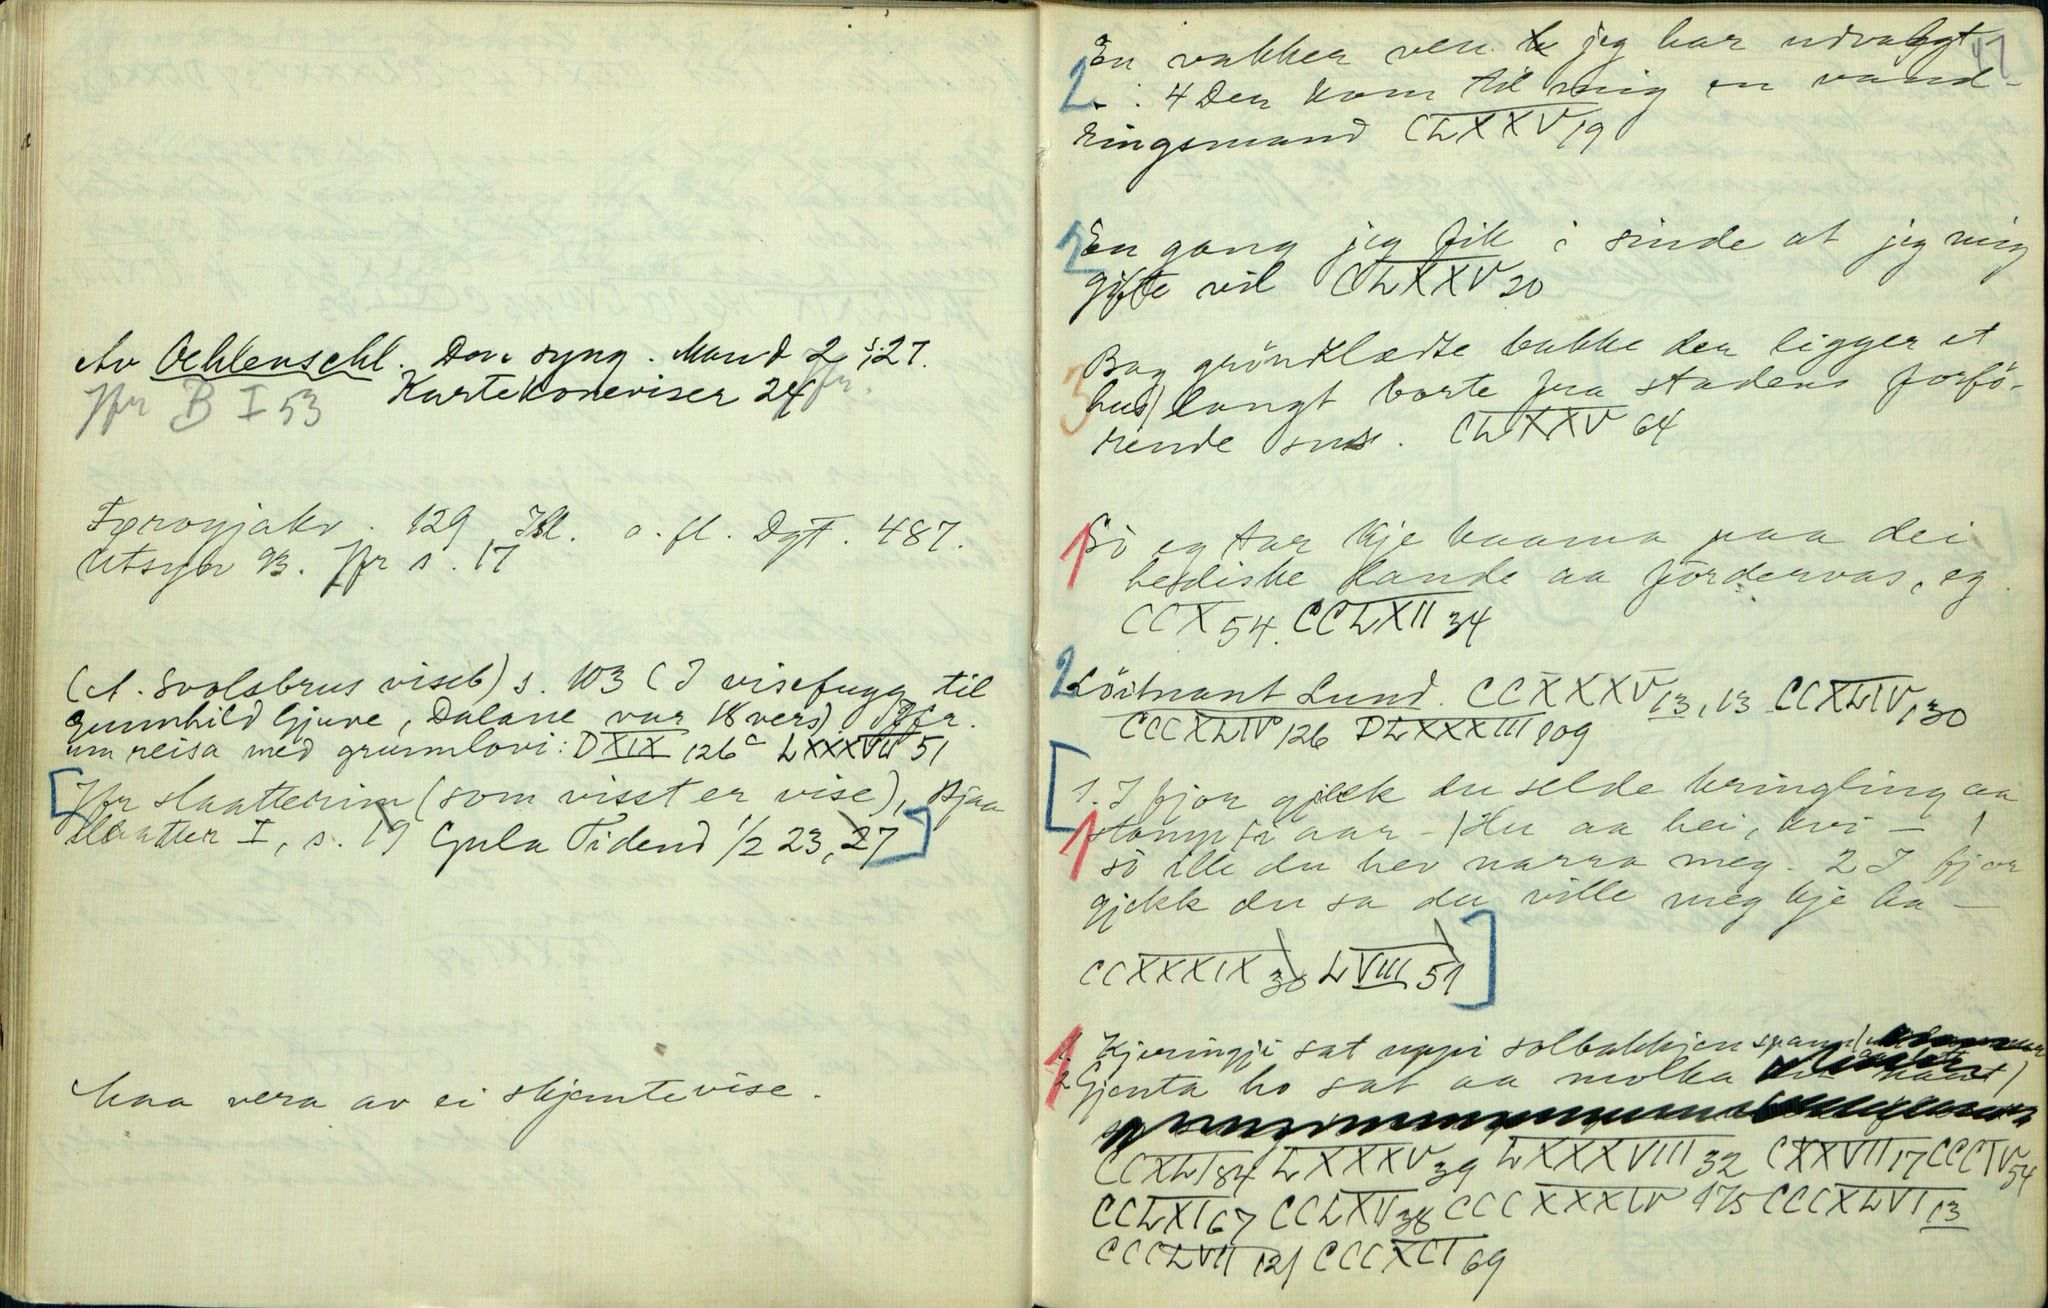 Av Oehlenschl. Den syng. Mand 2 s. 27.
Jfr B I 53 Kartekoneviser 24 jfr.
Færoyjakv. 129 o. fl. DgF. 487.
Utsyn 93. Jfr s. 17
(A. Svolsbrus viseb) s. 103 (I visefugg til
Gunnhild Gjuve, Dalane var 18 vers) Jfr.
um reisa med grunnlovi: DXIX 126c LXXXVII 51
[Jfr slaatterim (som visst er vise), Bjaa
slaatter I, s. 19 Gula Tidend 1/2 23, 27]
maa vera av ei skjemtevise.
47
En vakker ven jeg har udvalgt
2 4 Der kom til mig en vand-
ringsmand CLXXV 19
2 En gang jeg fik i sinde at jeg mig
gifte vil CLXXV 20
Bag gröndklædte bakke der ligger et
3 hus) langt borte fra stadens forfö-
rende sus. CLXXV 64
1 Sò eg tar kje baana paa dei
hediske lande aa fordervas, eg
CCX 54. CCLXII 34
2 Löitnant Lund. CCXXXV 13, 13 CCXLIV 130
CCCXLIV 126 DLXXXIII 109
[1. I fjor gjekk du selde kringling aa
1 stomp) i aar - Hu aa hei, kvi - !
sò ille du hev narra meg. 2 I fjor
gjekk du sa du ville meg kje ha -
CCXXXIX 30 LVIII 51]
1 1. Kjeringji sat uppi solbakkjen spann
2 Gjenta ho sat aa molka
CCXLI 84 LXXXV 39 LXXXVIII 32 CXXVII 17 CCCIV 54
CCLXI 67 CCLXII 38 CCCXXXIV 175 CCCXLVI 13
CCCLVII 121 CCCXCI 69